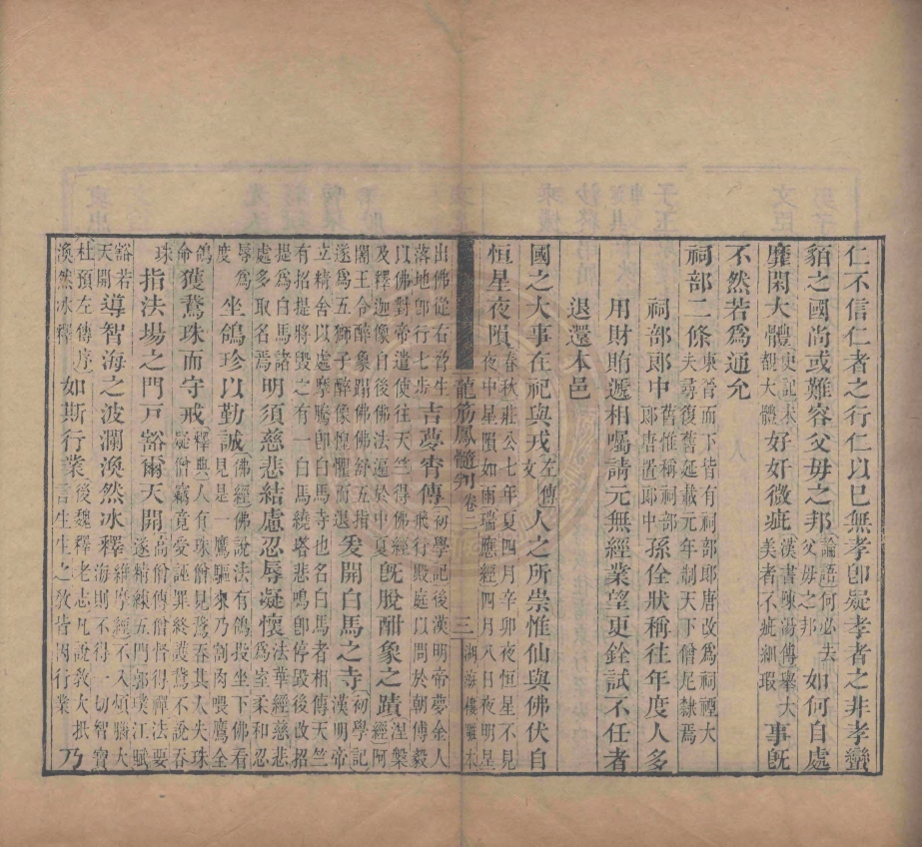 仁不信仁者之行仁以已無孝卽疑孝者之非孝蠻
貊之國尚或難容父母之邦論語何必去父母之邦如何自處
靡閑大體史記未覩大體好奸微疵漢書陳湯傳舉大美者不疵細瑕事旣
不然若爲通允
祠部二條東晉而下皆有祠部郎唐改爲祠禋大夫尋復舊延載元年制天下僧尼隸焉
祠部郎中郎唐置郎中舊惟稱祠部孫佺狀稱往年度人多
用財賄遞相囑請元無經業望更銓試不任者
退還本邑
國之大事在祀與戎左傳文人之所崇惟仙與佛伏自
恒星夜隕春秋莊公七年夏四月辛卯夜恒星不見夜中星隕如雨瑞應經四月八月夜明星
龍筋鳳髓判 卷二 三 湖海樓雕本
出佛從右脅生落地卽行七步吉夢宵傳初學記後漢明帝夢金人飛行殿庭以問於朝傅毅
以佛對帝遣使往天竺得佛經及釋迦像自後佛法遍於中夏旣脫酣象之蹟涅槃經阿
闍王令醉象蹋佛佛舒五指遂爲五獅子醉像惶懼而退爰開白馬之寺初學記漢明帝
立精舍以處摩騰卽白馬寺也名白馬者相傳天竺有招提將毀之有一白馬繞塔悲鳴卽停毀後改招
提爲白馬諸處多取名焉明須慈悲結慮忍辱凝懷法華經慈悲爲室柔和忍
辱爲度坐鴿珍以勤誠佛經佛說法有鴿投坐下佛看是一鷹驅來乃割肉喂鷹全
鴿命獲鵞珠而守戒釋典人有珠僧見鵞吞其大失珠疑僧竊竟受誣罪終護鵞不說吞
珠指法場之門戸豁爾天開高僧傳僧督得禪法要遂精練五門郭璞江賦
豁若天開導智海之波瀾渙然冰釋維摩經不入煩惱大海則不得一切智寶
杜預左傳序渙然冰釋如斯行業後魏釋老志凡說教大抵言生生之教皆因行業乃